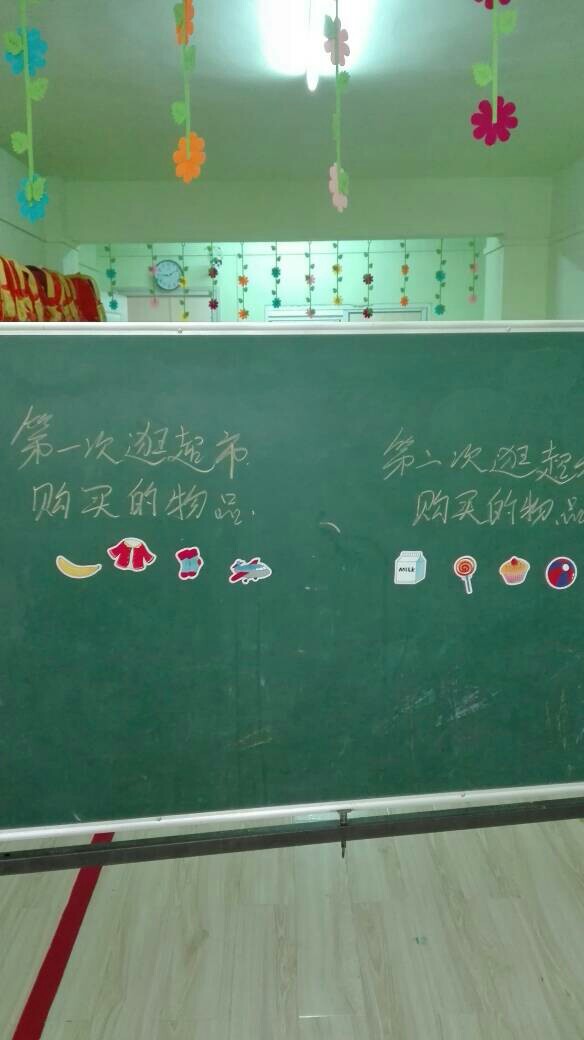 第一次逛超市
购买的物品.
MILK
第二次逛超
购买的物品